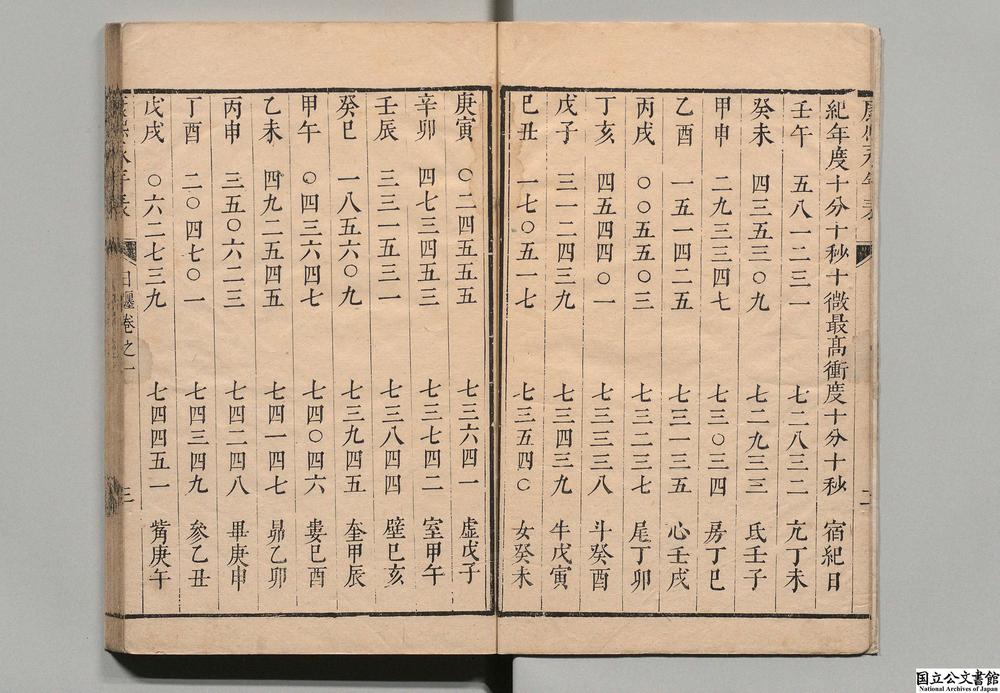 紀年度十分十秒十微最高衝度十分十秒 宿紀日
壬午 五八一二三一 七二八三二 亢丁未
癸未 四三五三〇九 七二九三三 氐壬子
甲申 二九三三四七 七三〇三四 房丁巳
乙酉 一五一四二五 七三一三五 心壬戌
丙戌 〇〇五五〇三 七三二三七 尾丁卯
丁亥 四五四四〇一 七三三三八 斗癸酉
戊子 三一二四三九 七三四三九 牛戊寅
己丑 一七〇五一七 七三五四〇 女癸未
庚寅 〇二四五五五 七三六四一 虛戊子
辛卯 四七三四五三 七三七四二 室甲午
壬辰 三三一五三一 七三八四四 壁己亥
癸巳 一八五六〇九 七三九四五 奎甲辰
甲午 〇四三六四七 七四〇四六 婁己酉
乙未 四九二五四五 七四一四七 昴乙卯
丙申 三五〇六二三 七四二四八 畢庚申
丁酉 二〇四七〇一 七四三四九 參乙丑
戊戌 〇六二七三九 七四四五一 觜庚午
日躔卷之一 三
国立公文書館
National Archives of Japan